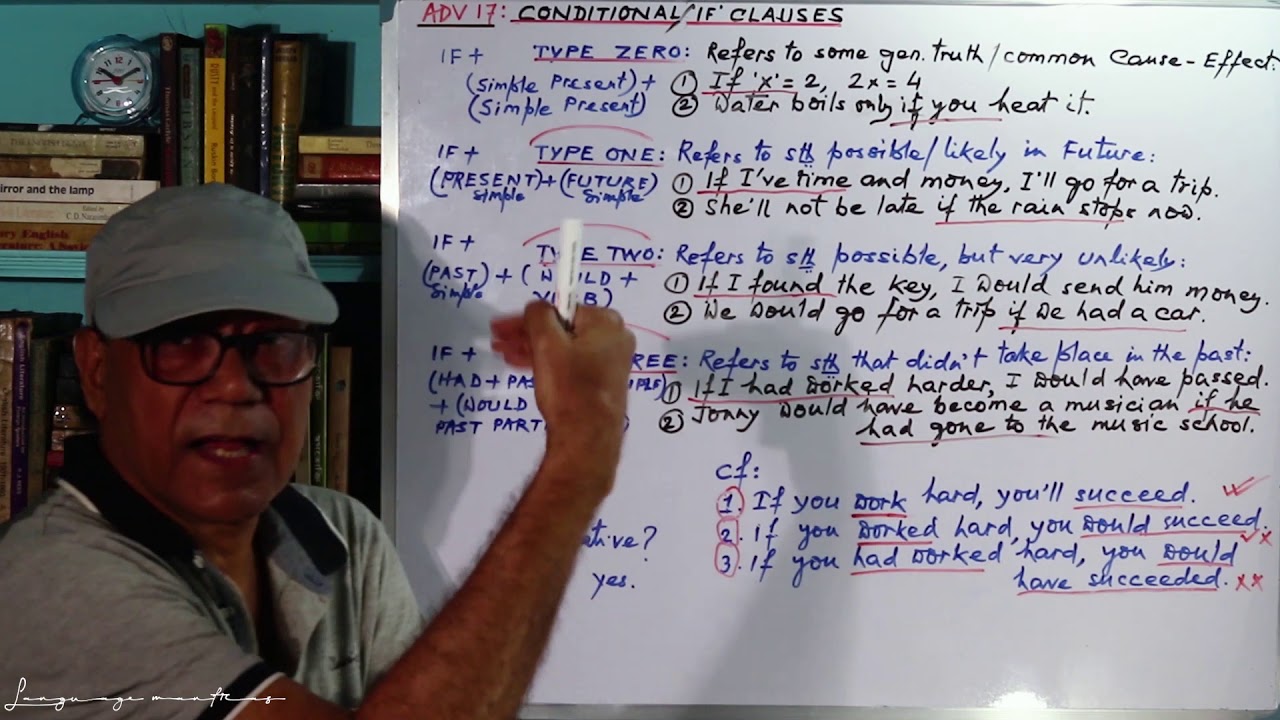 ADV 17: CONDITIONAL/'IF' CLAUSES
IF + TYPE ZERO: Refers to some gen. truth/common Cause-Effect:
(Simple Present) + ① If 'x' = 2, 2x = 4
(Simple Present) ② Water boils only if you heat it.
IF + TYPE ONE: Refers to sth possible/likely in Future:
(PRESENT) + (FUTURE) ① If I've time and money, I'll go for a trip.
Simple Simple ② She'll not be late if the rain stops now.
IF + TYPE TWO: Refers to sth possible, but very unlikely:
(PAST) + (WOULD + ① If I found the key, I would send him money.
Simple ② We would go for a trip if we had a car.
IF + REE: Refers to sth that didn't take place in the past:
(HAD + PAS IPLE) ① If I had worked harder, I would have passed.
+ (WOULD ② Jonny would have become a musician if he
PAST PART had gone to the music school.
Cf:
1. If you work hard, you'll succeed.
2. If you worked hard, you would succeed.
ative? 3. If you had worked hard, you would
yes. have succeeded.
irror and the lamp
Edited by
C.D. Narasim
ry English
Language mantras